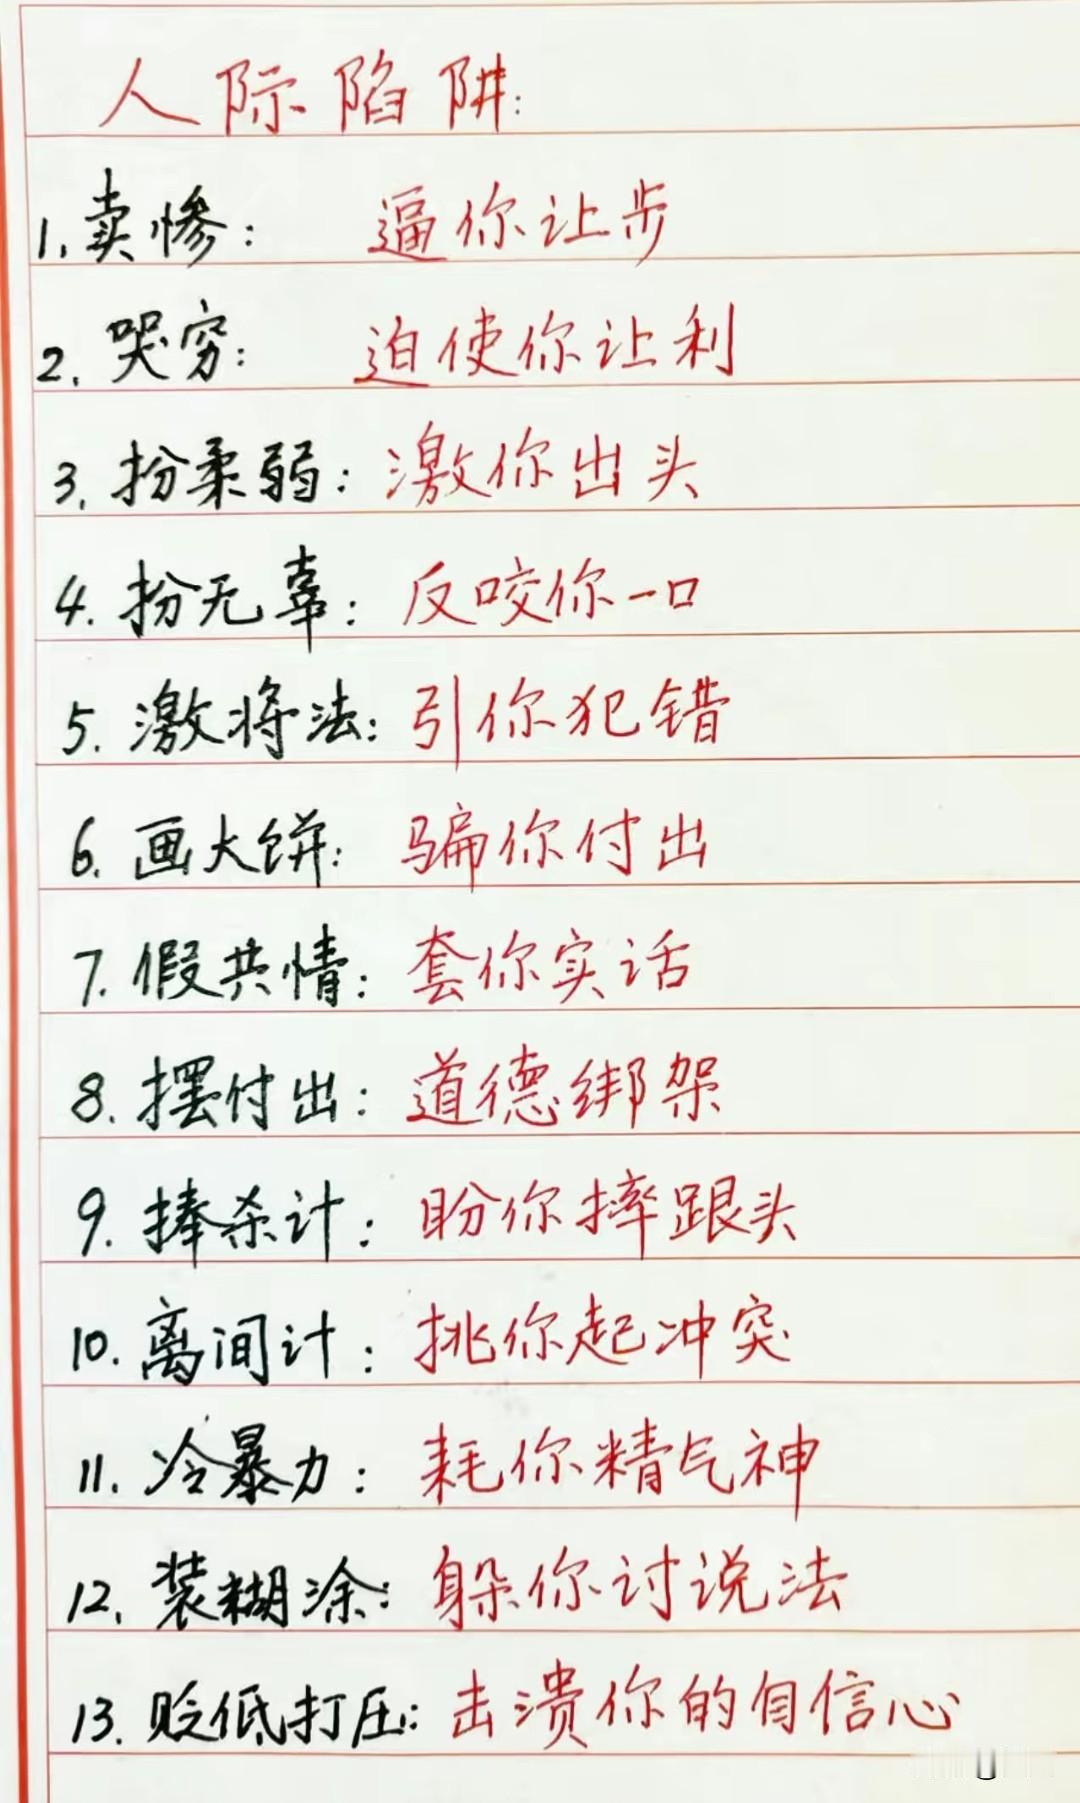 人际陷阱:
1.卖惨: 逼你让步
2.哭穷: 迫使你让利
3.扮柔弱: 激你出头
4.扮无辜: 反咬你一口
5.激将法: 引你犯错
6.画大饼: 骗你付出
7.假共情: 套你实话
8.摆付出: 道德绑架
9.捧杀计: 盼你摔跟头
10.离间计: 挑你起冲突
11.冷暴力: 耗你精气神
12.装糊涂: 躲你讨说法
13.贬低打压: 击溃你的自信心